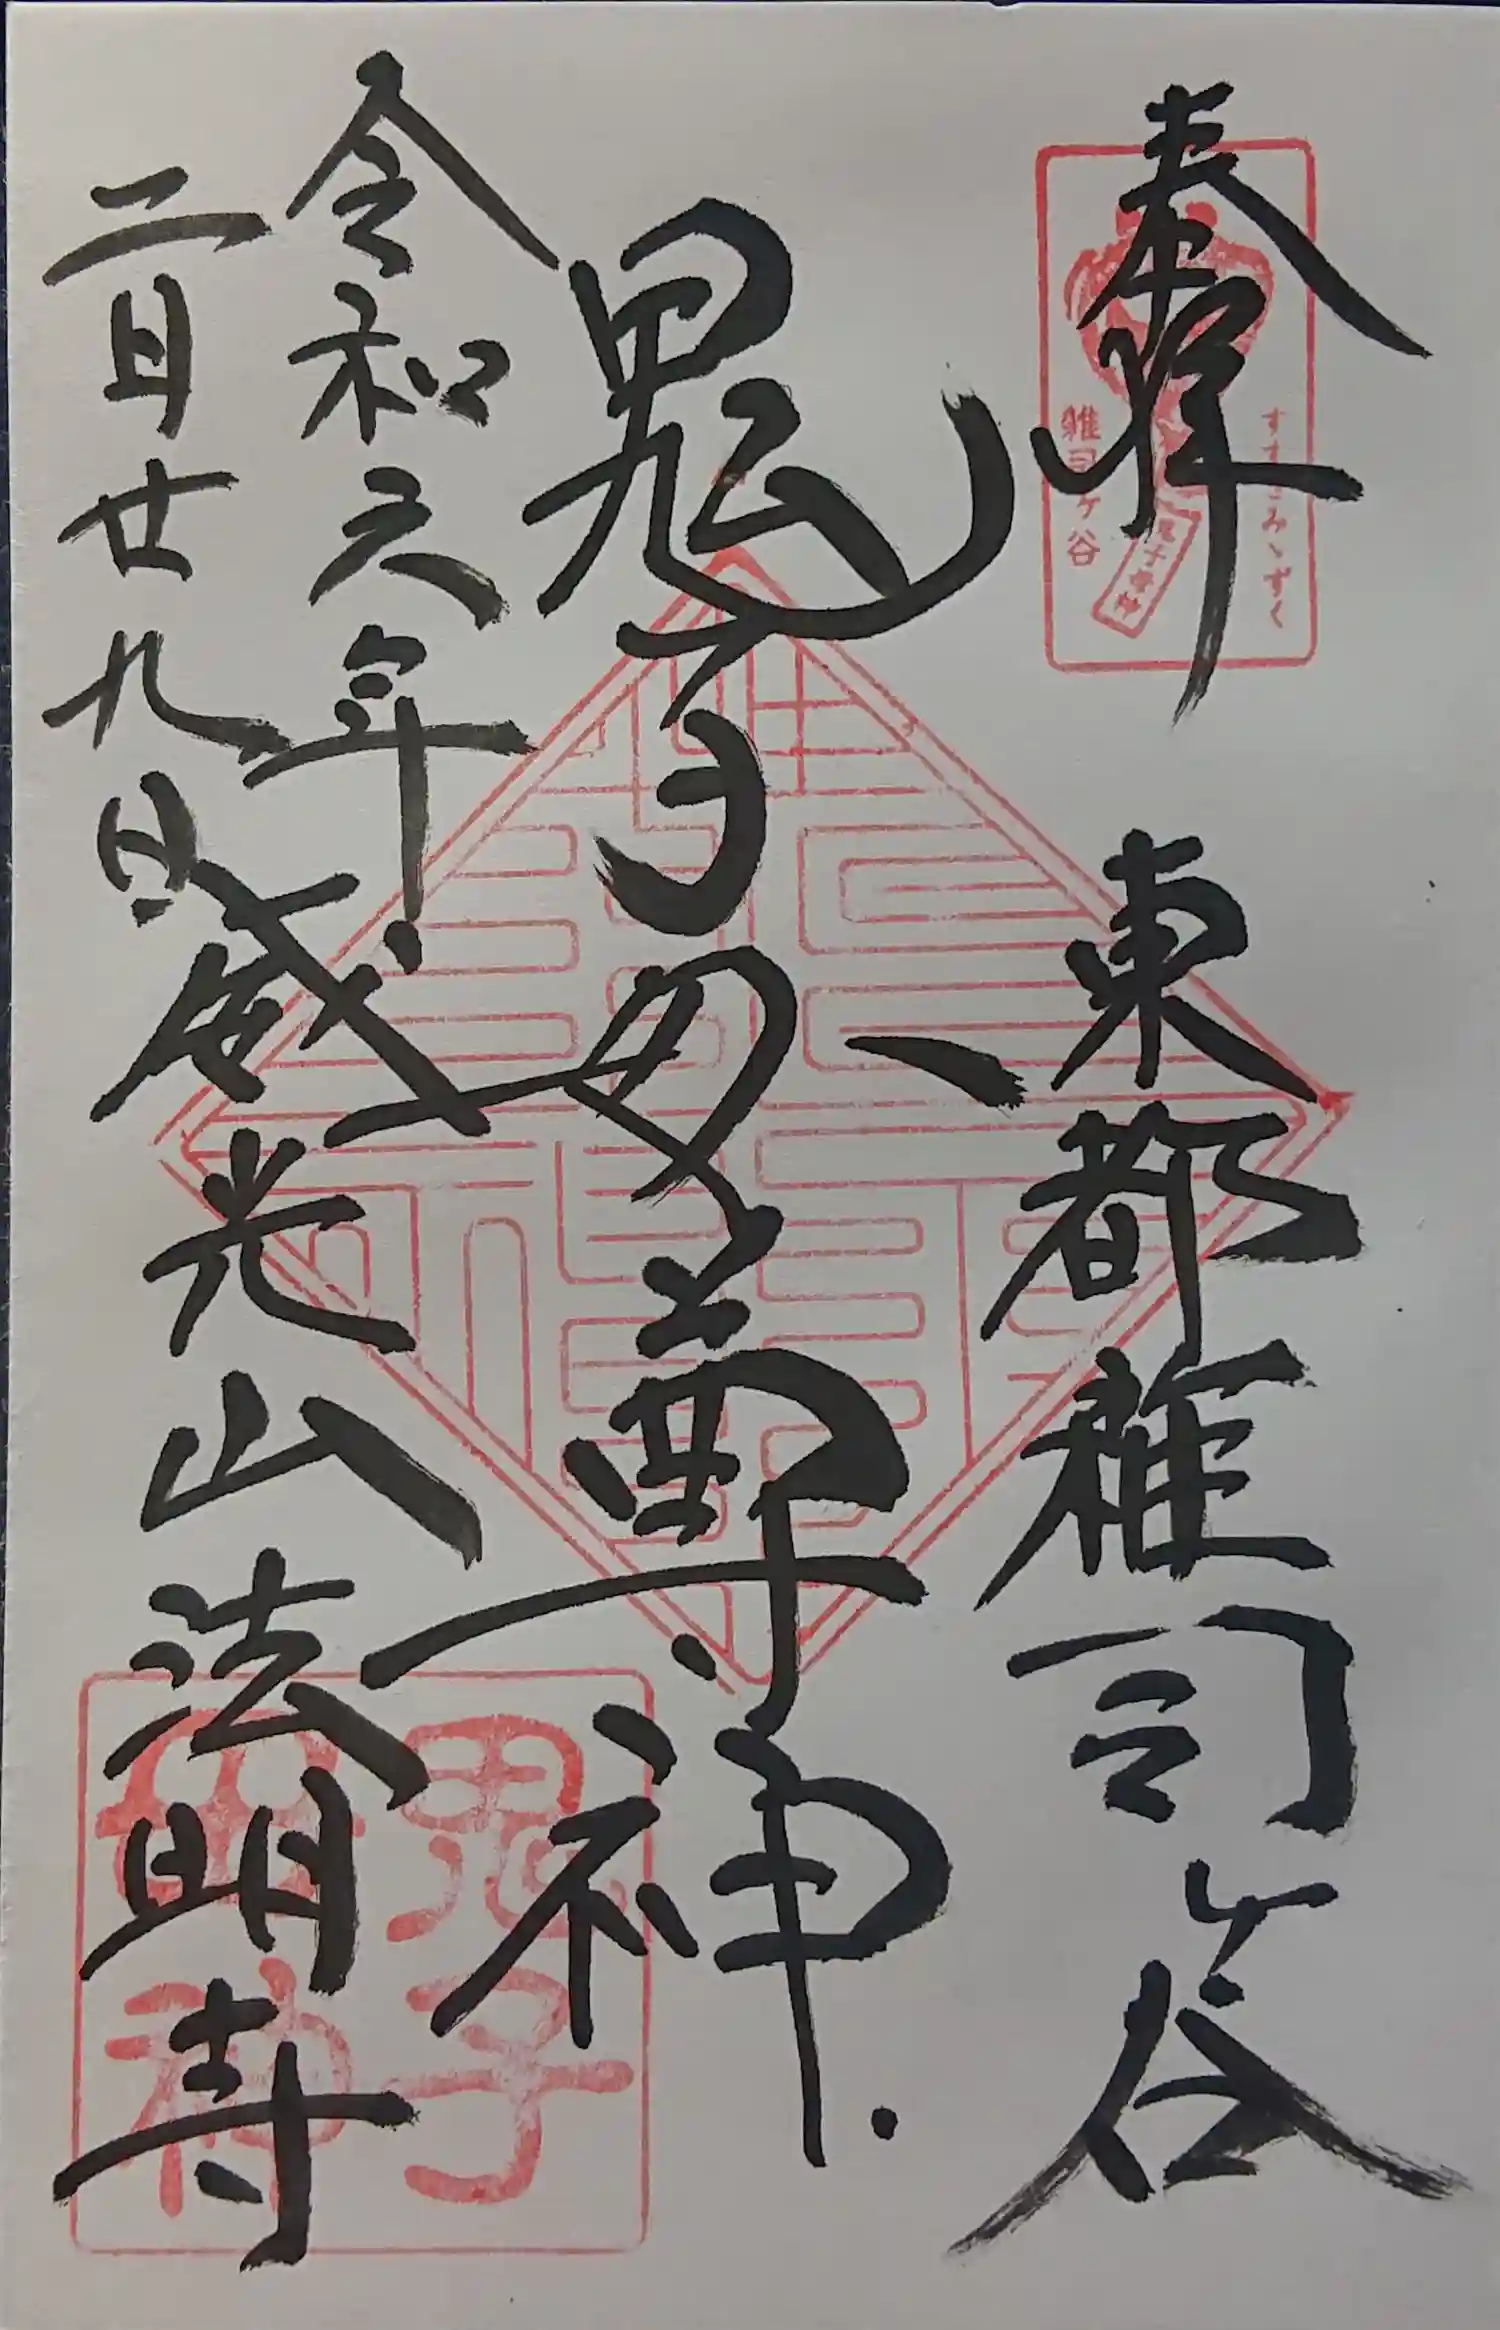 奉拝
東都雑司ヶ谷
鬼子母尊神
令和六年
二月廿九日
威光山法明寺
すすきみゝずく
雑司ヶ谷
鬼子母神
鬼子
母神